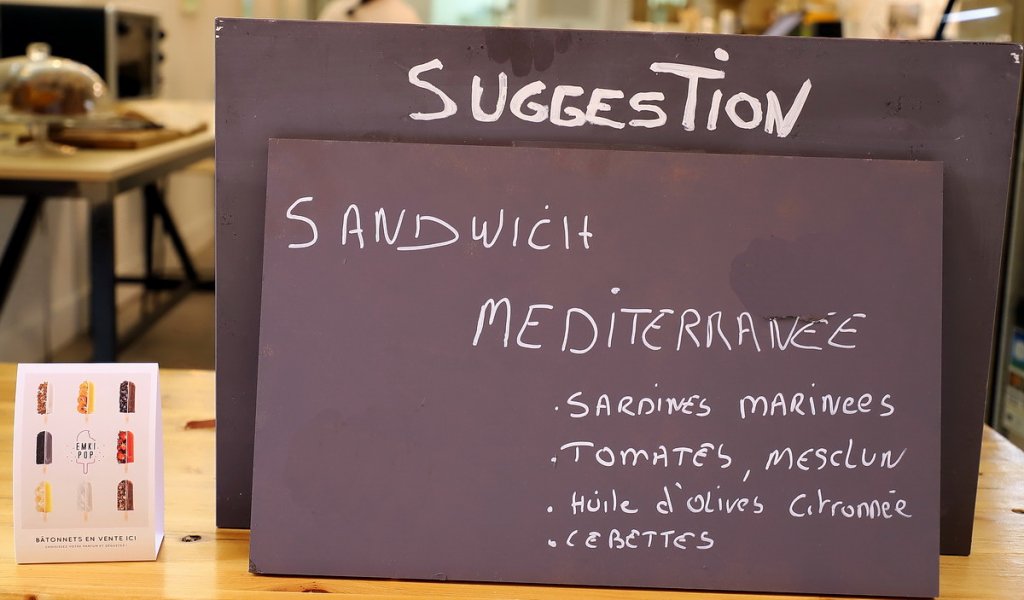 SUGGESTION
SANDWICH
MEDITERRANÉE
. SARDINES MARINEES
. TOMATES, MESCLUN
. Huile d'Olives Citronnée
. CEBETTES
EMKI
POP
BÂTONNETS EN VENTE ICI